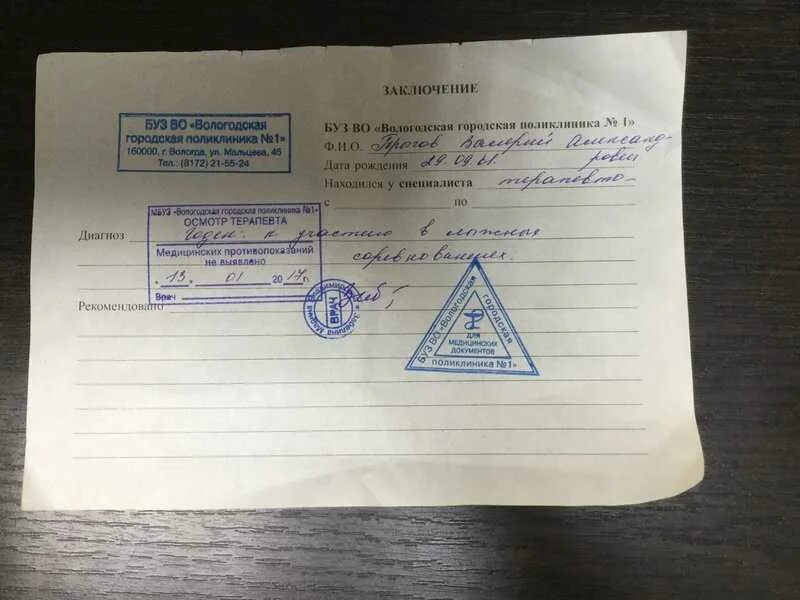 ЗАКЛЮЧЕНИЕ
БУЗ ВО «Вологодская
городская поликлиника №1»
160000, г. Вологда, ул. Мальцева, 45
Тел.: (8172) 21-55-24
БУЗ ВО «Вологодская городская поликлиника № 1»
Ф.И.О. Валерий Александ-
Дата рождения 29.09.61. рович
Находился у специалиста терапевта
с по
МБУЗ «Вологодская городская поликлиника №1»
ОСМОТР ТЕРАПЕВТА
Диагноз Годен к участию в лыжных
соревнованиях.
Медицинских противопоказаний
не выявлено
" 13 " 01 2017г.
Врач
Рекомендовано
ВРАЧ
БУЗ ВО «Вологодская городская поликлиника №1»
ДЛЯ
МЕДИЦИНСКИХ
ДОКУМЕНТОВ